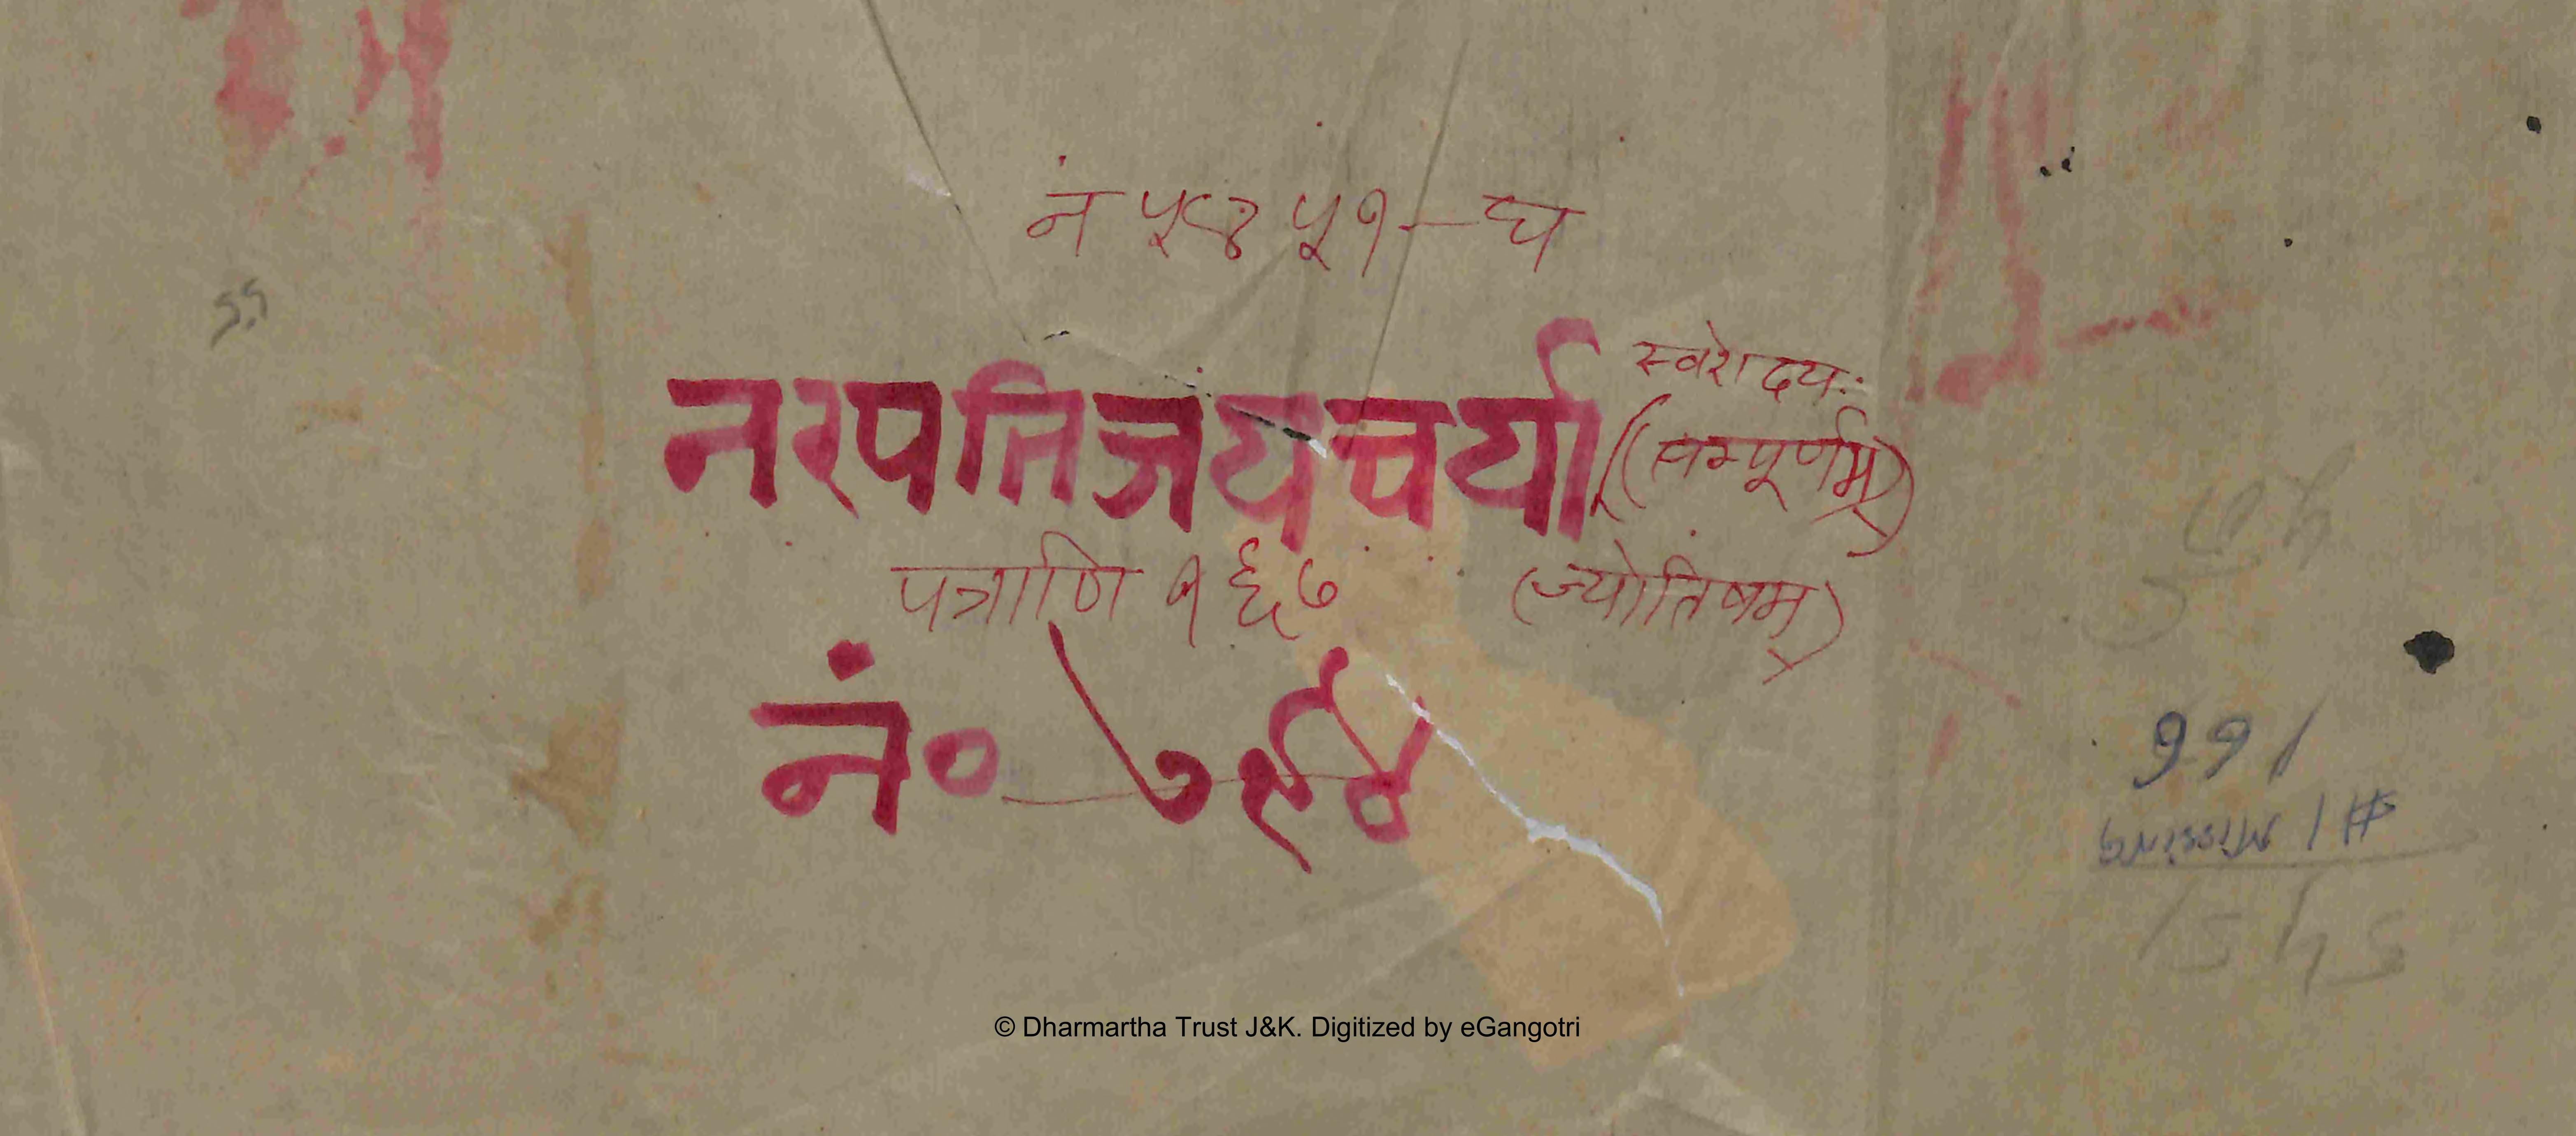 नं ५४५१-घ
नरपतिजयचर्या स्वरोदयः
(सम्पूर्णम्)
पत्राणि १६७ (ज्योतिषम्)
नं० ७९४
166
#1 Missing
© Dharmartha Trust J&K. Digitized by eGangotri